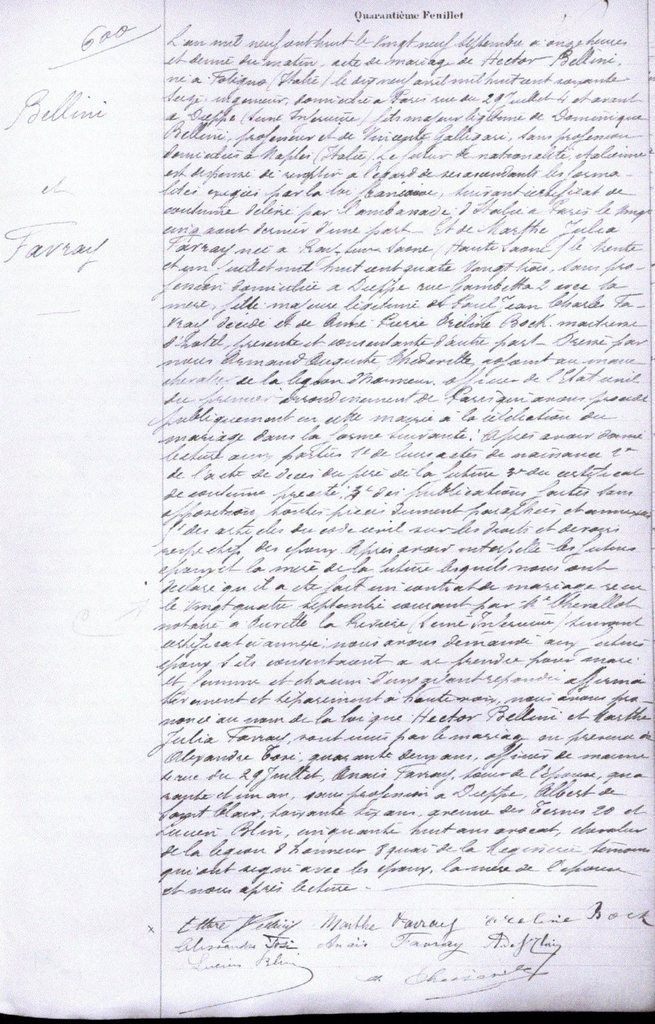 Quarantième Feuillet
600
Bellini
et
Favray
L'an mil neuf cent huit le vingt neuf septembre à onze heures
et demie du matin, acte de mariage de Hector Bellini,
né à Foligno (Italie) le dix neuf avril mil huit cent soixante
seize, ingénieur, domicilié à Paris rue du 29 Juillet 4 et avant
à Dieppe (Seine Inférieure) fils majeur légitime de Dominique
Bellini, professeur et de Vincente Galligari, sans profession
domiciliés à Naples (Italie). Le futur de nationalité italienne
est dispensé de remplir à l'égard de ses ascendants les forma-
lités exigées par la loi française, suivant certificat de
coutume délivré par l'ambassade d'Italie à Paris le vingt
cinq août dernier d'une part. Et de Marthe Julia
Favray née à Ray sur Saone (Haute Saone) le trente
et un juillet mil huit cent quatre vingt trois, sans pro-
fession domiciliée à Dieppe rue Gambetta 2 avec sa
mère, fille majeure légitime de Paul Jean Charles Fa-
vray décédé et de Bock, maîtresse
d'hôtel, présente et consentante d'autre part. Dressé par
nous Armand Auguste adjoint au maire
chevalier de la légion d'honneur, officier de l'Etat civil
du premier arrondissement de Paris qui avons procédé
publiquement en cette mairie à la célébration du
mariage dans la forme suivante: Après avoir donné
lecture aux parties 1° de leurs actes de naissance 2°
de l'acte de décès du père de la future 3° du certificat
de coutume précité, des publications faites sans
opposition, toutes pièces dument paraphées et annexées
des articles du code civil sur les droits et devoirs
respectifs des époux. Après avoir interpellé les futurs
époux et la mère de la future lesquels nous ont
déclaré qu'il a été fait un contrat de mariage reçu
le vingt quatre septembre courant par Me Chevallot
notaire à Ouville la Rivière (Seine Inférieure) suivant
certificat ci annexé, nous avons demandé aux futurs
époux s'ils consentaient à se prendre pour mari
et femme et chacun d'eux ayant répondu affirma-
tivement et séparément à haute voix, nous avons pro-
noncé au nom de la loi que Hector Bellini et Marthe
Julia Favray, sont unis par le mariage en présence de
Alexandre Tosi, quarante ans, officier de marine
rue du 29 Juillet, Anaïs Favray, soeur de l'épouse, qua-
rante et un an, sans profession à Dieppe, Albert de
Saint Clair, soixante ans, avenue des Ternes 20 et
Lucien Blin, cinquante huit ans avocat, chevalier
de la légion d'honneur 8 quai de la Mégisserie témoins
qui ont signé avec les époux, la mère de l'épouse
et nous après lecture.
Ettore Bellini Marthe Favray Bock
Alessandro Tosi Anaïs Favray
Lucien Blin